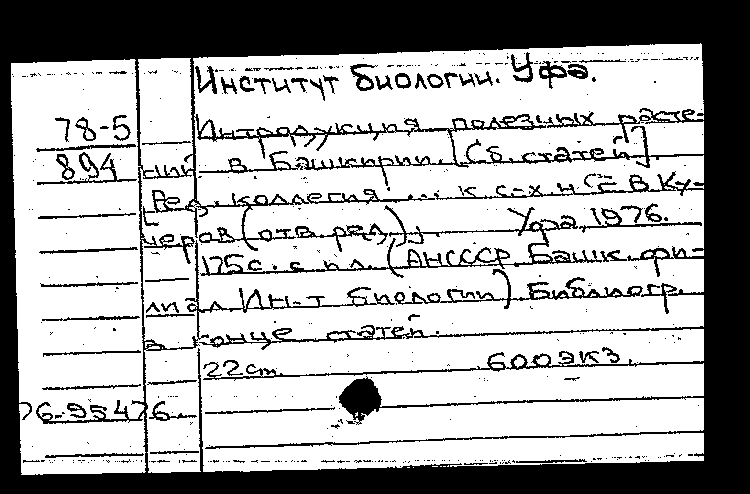 Институт биологии. Уфа.
78-5 Интродукция полезных расте-
894 ний в Башкирии. [Сб. статей].
Ред. коллегия: ... к. с-х. н. Е. В. Ку-
черов (отв. ред.) Уфа, 1976.
175с. с ил. (АНСССР. Башк. фи-
лиал Ин-т биологии) Библиогр.
в конце статей.
22см. 600экз.
76-95476